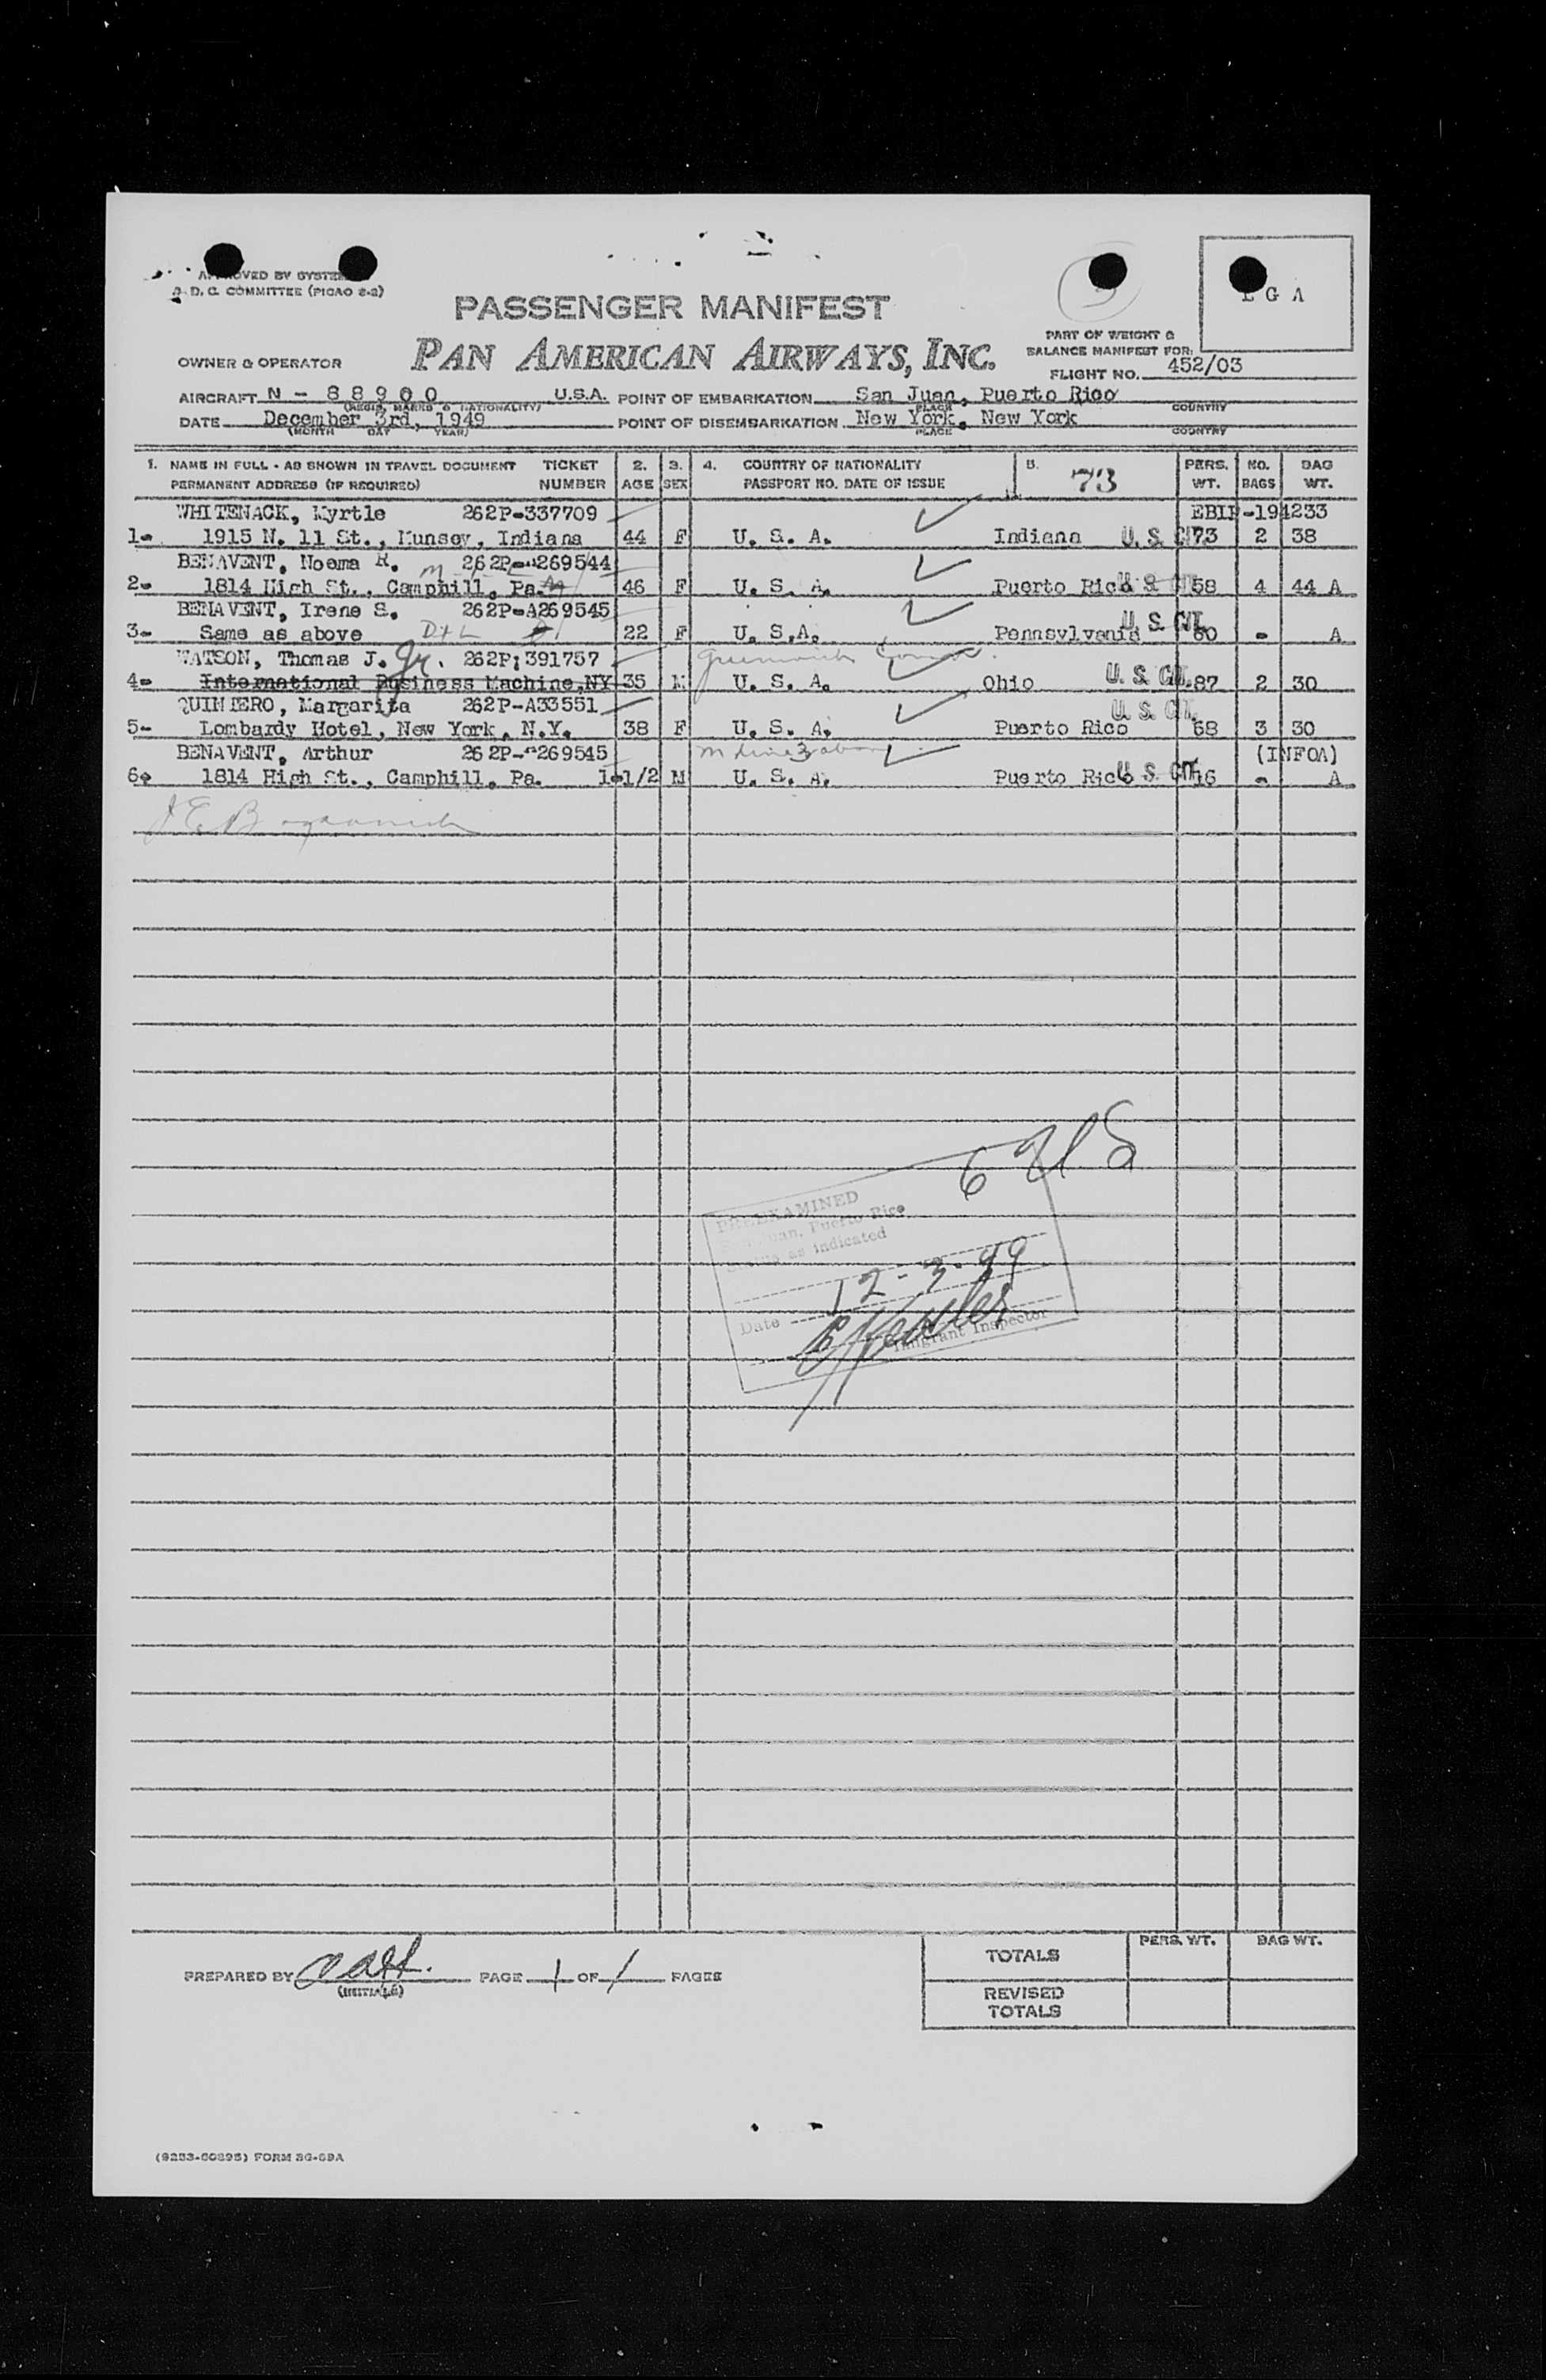 APPROVED BY SYSTEM
D. C. COMMITTEE (PICAO 2-2)
L G A
PASSENGER MANIFEST
PART OF WEIGHT &
BALANCE MANIFEST FOR:
OWNER & OPERATOR PAN AMERICAN AIRWAYS, INC.
FLIGHT NO. 452/03
AIRCRAFT N - 88900 U.S.A. POINT OF EMBARKATION San Juan, Puerto Rico
(REGIS. MARKS & NATIONALITY) PLACE COUNTRY
DATE December 3rd, 1949 POINT OF DISEMBARKATION New York, New York
(MONTH DAY YEAR) PLACE COUNTRY
1. NAME IN FULL - AS SHOWN IN TRAVEL DOCUMENT TICKET 2. 3. 4. COUNTRY OF NATIONALITY 5. 73 PERS. NO. BAG
PERMANENT ADDRESS (IF REQUIRED) NUMBER AGE SEX PASSPORT NO. DATE OF ISSUE WT. BAGS WT.
WHITENACK, Myrtle 262P-337709 EBIP-194233
1- 1915 N. 11 St., Munsey, Indiana 44 F U. S. A. Indiana U. S. CIT. 73 2 38
BENAVENT, Noema R. 262P-A269544
2- 1814 High St., Camphill, Pa. 46 F U. S. A. Puerto Rico U. S. CIT. 58 4 44 A
BENAVENT, Irene S. 262P-A269545
3- Same as above D+L 22 F U. S.A. Pennsylvania U. S. CIT. 60 - A
WATSON, Thomas J. Jr. 262P;391757 Greenwich Conn.
4- International Business Machine,NY 35 M U. S. A. Ohio U. S. CIT. 87 2 30
QUINTERO, Margarita 262P-A33551
5- Lombardy Hotel, New York, N.Y. 38 F U. S. A. Puerto Rico U. S. CIT. 68 3 30
BENAVENT, Arthur 262P-A269545 (INFOA)
6- 1814 High St., Camphill, Pa. 1-1/2 M U. S. A. Puerto Rico U. S. CIT. 16 - A
PREEXAMINED
San Juan, Puerto Rico
as indicated
Date 12-3-49
Immigrant Inspector
PREPARED BY PAGE 1 OF 1 PAGES
(INITIALS)
PERS. WT. BAG WT.
TOTALS
REVISED
TOTALS
(9253-60895) FORM SG-69A